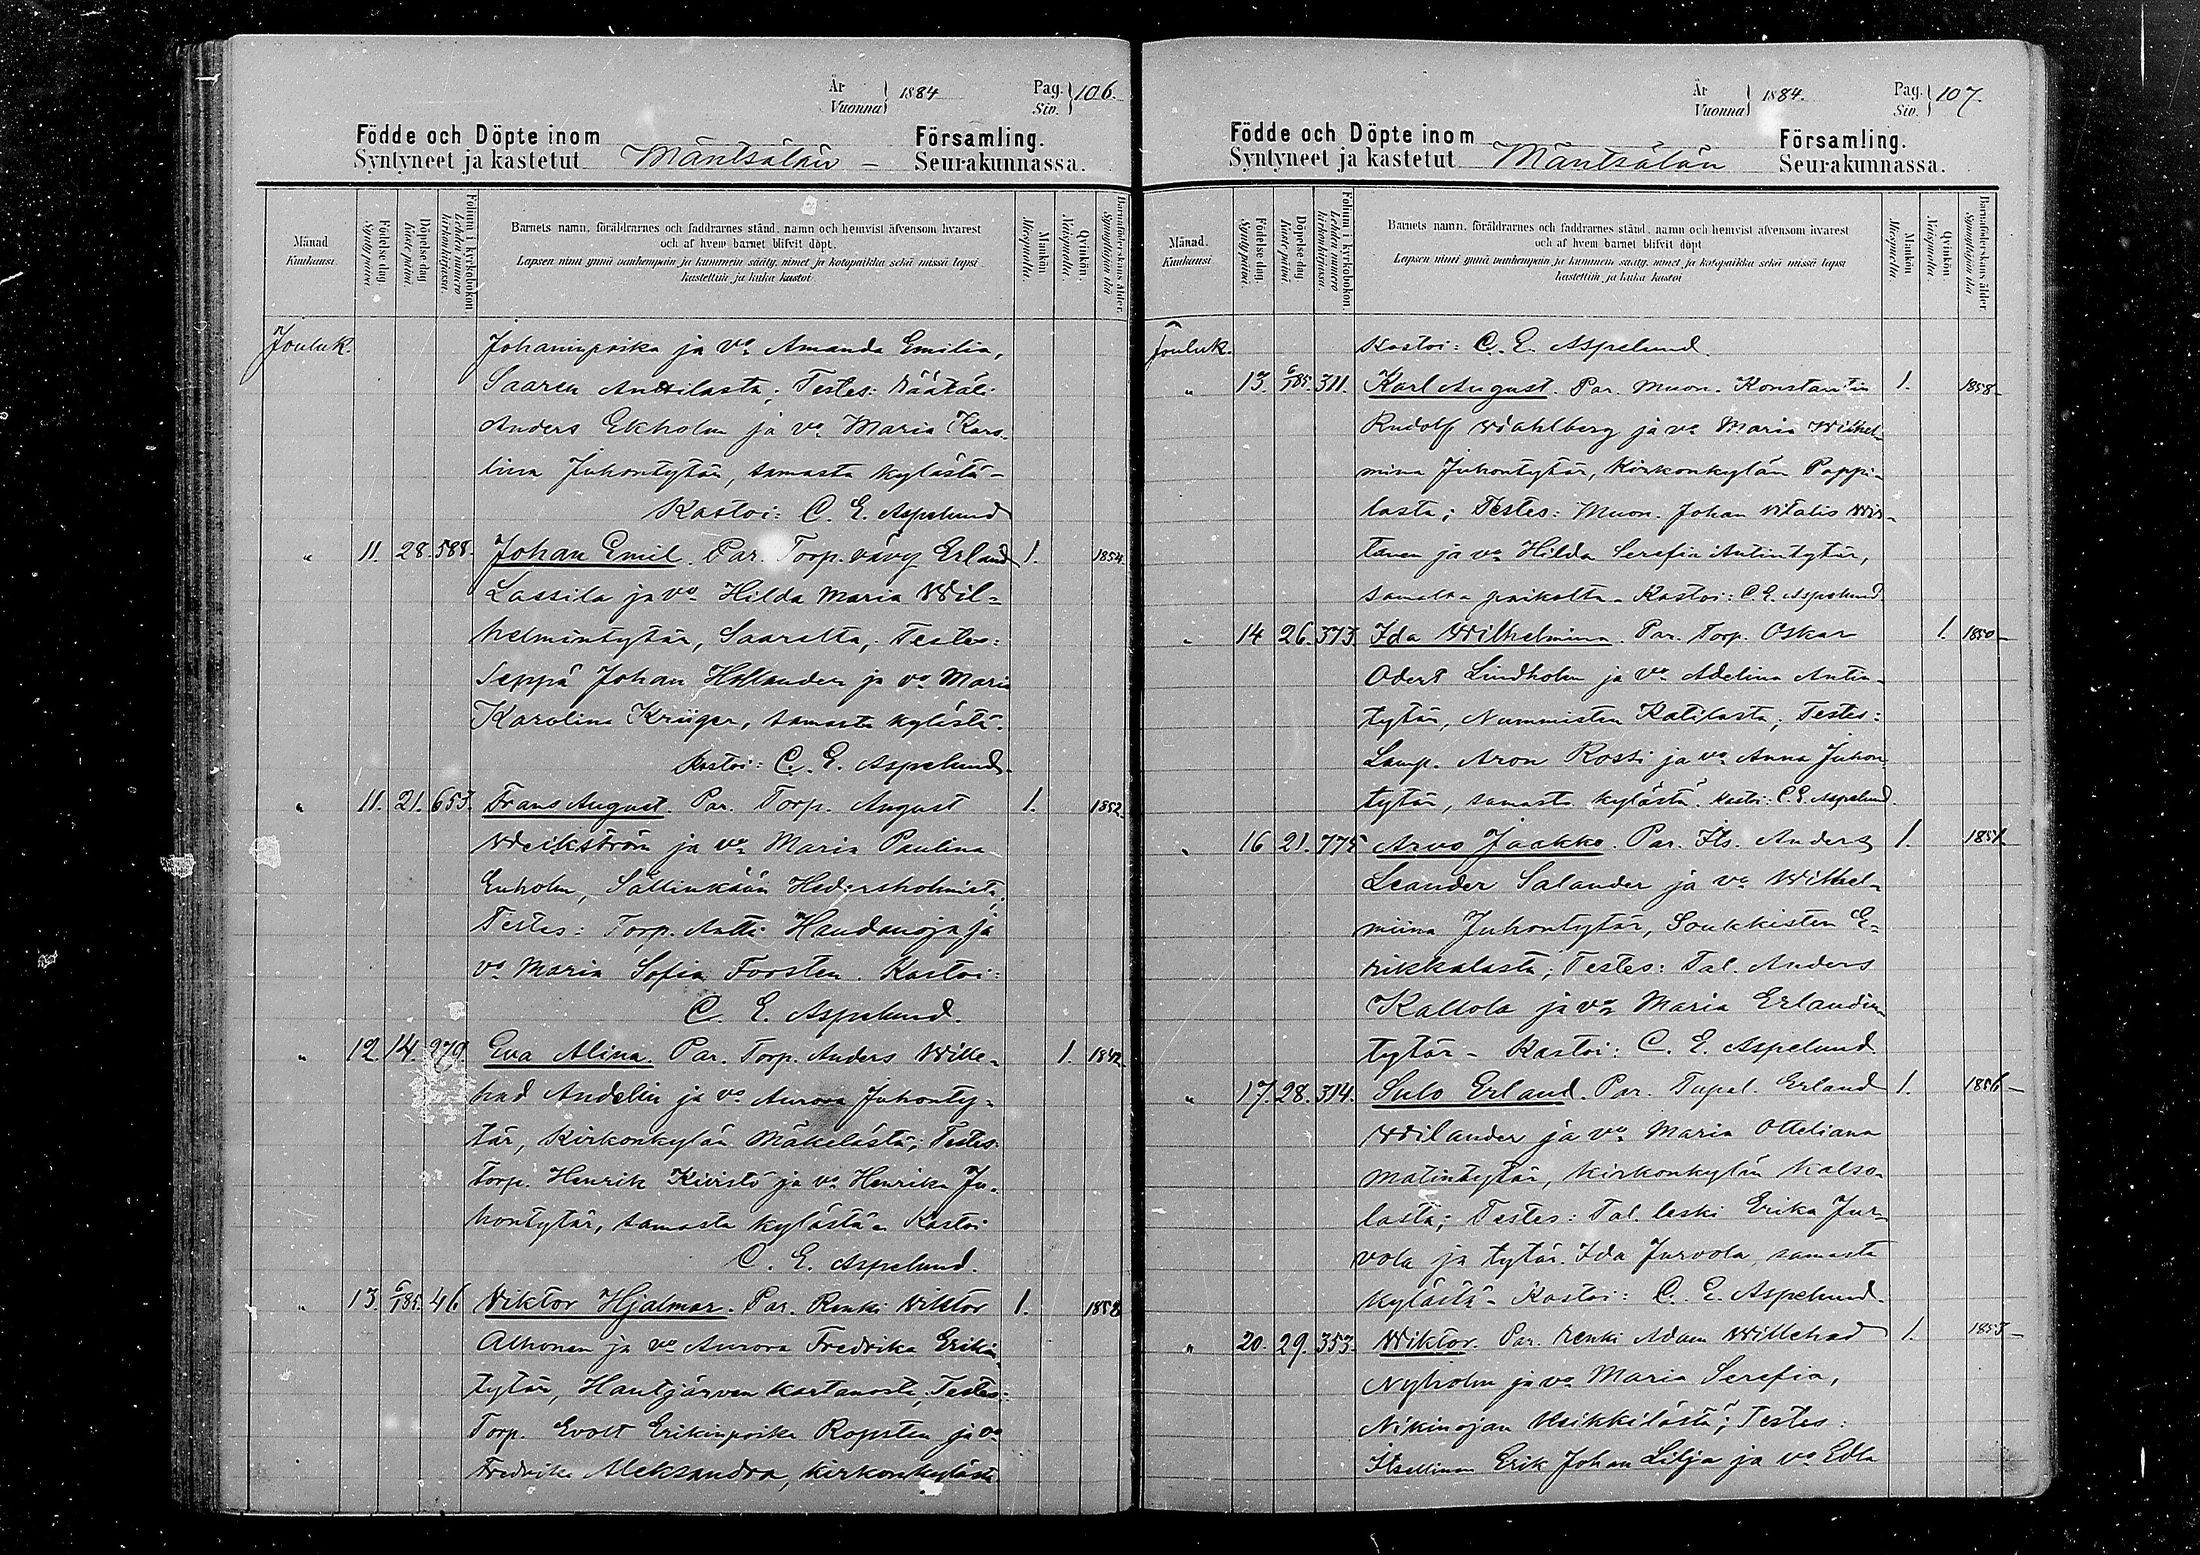 År
Vuonna } 1884
Pag.
Siv. } 106.
Födde och Döpte inom Församling.
Syntyneet ja kastetut Mäntsälän – Seurakunnassa.
Månad
Kuukausi.
Födelse dag.
Syntypäivä.
Döpelse dag
Kastepäivä
Folium i kyrkoboken.
Lehden numero kirkonkirjassa.
Barnets namn, föräldrarnes och faddrarnes stånd, namn och hemvist äfvensom hvarest
och af hvem barnet blifvit döpt.
Lapsen nimi ynnä vanhempain ja kummein sääty, nimet ja kotopaikka sekä missä lapsi
kastettiin ja kuka kastoi.
Mankön
Miespuolta.
Qvinkön.
Vaimpuolta.
Barnaföderskans ålder.
Synnyttäjän ikä
Jouluk. Johaninpoika ja vo Amanda Emilia,
Saaren Anttilasta; Testes: Räätäli
Anders Ekholm ja vo Maria Karo-
lina Juhontytär, samasta kylästä –
Kastoi: C. E. Aspelund
" 11. 28. 588. Johan Emil. Par. Torp. vävy Erland 1. 1854
Lassila ja vo Hilda Maria Wil-
helmintytär, Saarelta; Testes:
Seppä Johan Hollander ja vo Maria
Karolina Krüger, samasta kylästä.
Kastoi: C. E. Aspelund.
" 11. 21. 653. Frans August. Par. Torp. August 1. 1852
Weikström ja vo Maria Paulina
Enholm, Sällinkään Hedersholmista,
Testes: Torp. Antti Haudanoja ja
vo Maria Sofia Forsten. Kastoi:
C. E. Aspelund.
" 12 14. 279. Eva Alina. Par. Torp. Anders Wille- 1. 1842
had Andelin ja vo Aurora Juhonty-
tär, Kirkonkylän Mäkelästä; Testes:
Torp. Henrik Kivistö ja vo Henrika Ju-
hontytär, samasta kylästä – Kastoi
C. E. Aspelund.
" 13. 6/1 85. 46 Viktor Hjalmar. Par. Renki Viktor 1. 1858
Alhonen ja vo Aurora Fredrika Erikin
tytär, Hautjärven kartanosta, Testes:
Torp. Evert Erikinpoika Ropsten ja vo
Fredrika Aleksandra, kirkonkylästä
År
Vuonna } 1884.
Pag.
Siv. } 107.
Födde och Döpte inom Församling.
Syntyneet ja kastetut Mäntsälän Seurakunnassa.
Månad.
Kuukausi
Födelse dag.
Syntypäivä.
Döpelse dag.
Kastepäivä
Folium i kyrkoboken.
Lehden numero kirkonkirjassa.
Barnets namn, föräldrarnes och faddrarnes stånd, namn och hemvist äfvensom hvarest
och af hvem barnet blifvit döpt
Lapsen nimi ynnä vanhempain ja kummein sääty, nimet ja kotopaikka sekä missä lapsi
kastettiin ja kuka kastoi
Mankön
Miespuolta.
Qvinkön.
Vaimpuolta.
Barnaföderskans ålder.
Synnyttäjän ikä
Jouluk. Kastoi: C. E. Aspelund.
" 13. 6/1 85. 311. Karl August. Par. Muon. Konstantin 1. 1858
Rudolf Wahlberg ja vo Maria Wilhel-
mina Juhontytär, Kirkonkylän Pappi-
lasta; Testes: Muon. Johan Vitalis Wir-
tanen ja vo Hilda Serafia Antintytär,
samalta paikalta – Kastoi: C. E. Aspelund
" 14 26. 373. Ida Wilhelmina. Par. Torp. Oskar 1. 1850
Odert Lindholm ja vo Adelina Antin-
tytär, Nummisten Katilasta; Testes:
Lamp. Aron Rossi ja vo Anna Juhon-
tytär, samasta kylästä. Kastoi: C. E. Aspelund.
" 16 21. 775 Arvo Jaakko. Par. Its. Anders 1. 1851
Leander Salander ja vo Wilhel-
miina Juhontytär, Soukkisten E-
rikkalasta; Testes: Tal. Anders
Kaltola ja vo Maria Erlandin
tytär – Kastoi: C. E. Aspelund.
" 17. 28. 314. Sulo Erland. Par. Tupal. Erland 1. 1856
Wilander ja vo Maria Otteliana
Matintytär, Kirkonkylän Kalso-
lasta; Testes: Tal. leski Erika Jur-
vola ja tytär Ida Jurvola, samasta
kylästä – Kastoi: C. E. Aspelund.
" 20. 29. 353. Wiktor. Par. Renki Adam Willehad 1. 1853
Nyholm ja vo Maria Serafia,
Nikinojan Heikkilästä; Testes:
Itsellinen Erik Johan Lilja ja vo Edla